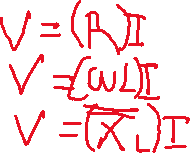 V=(R)I
V=(ωL)I
V=(X̅L)I